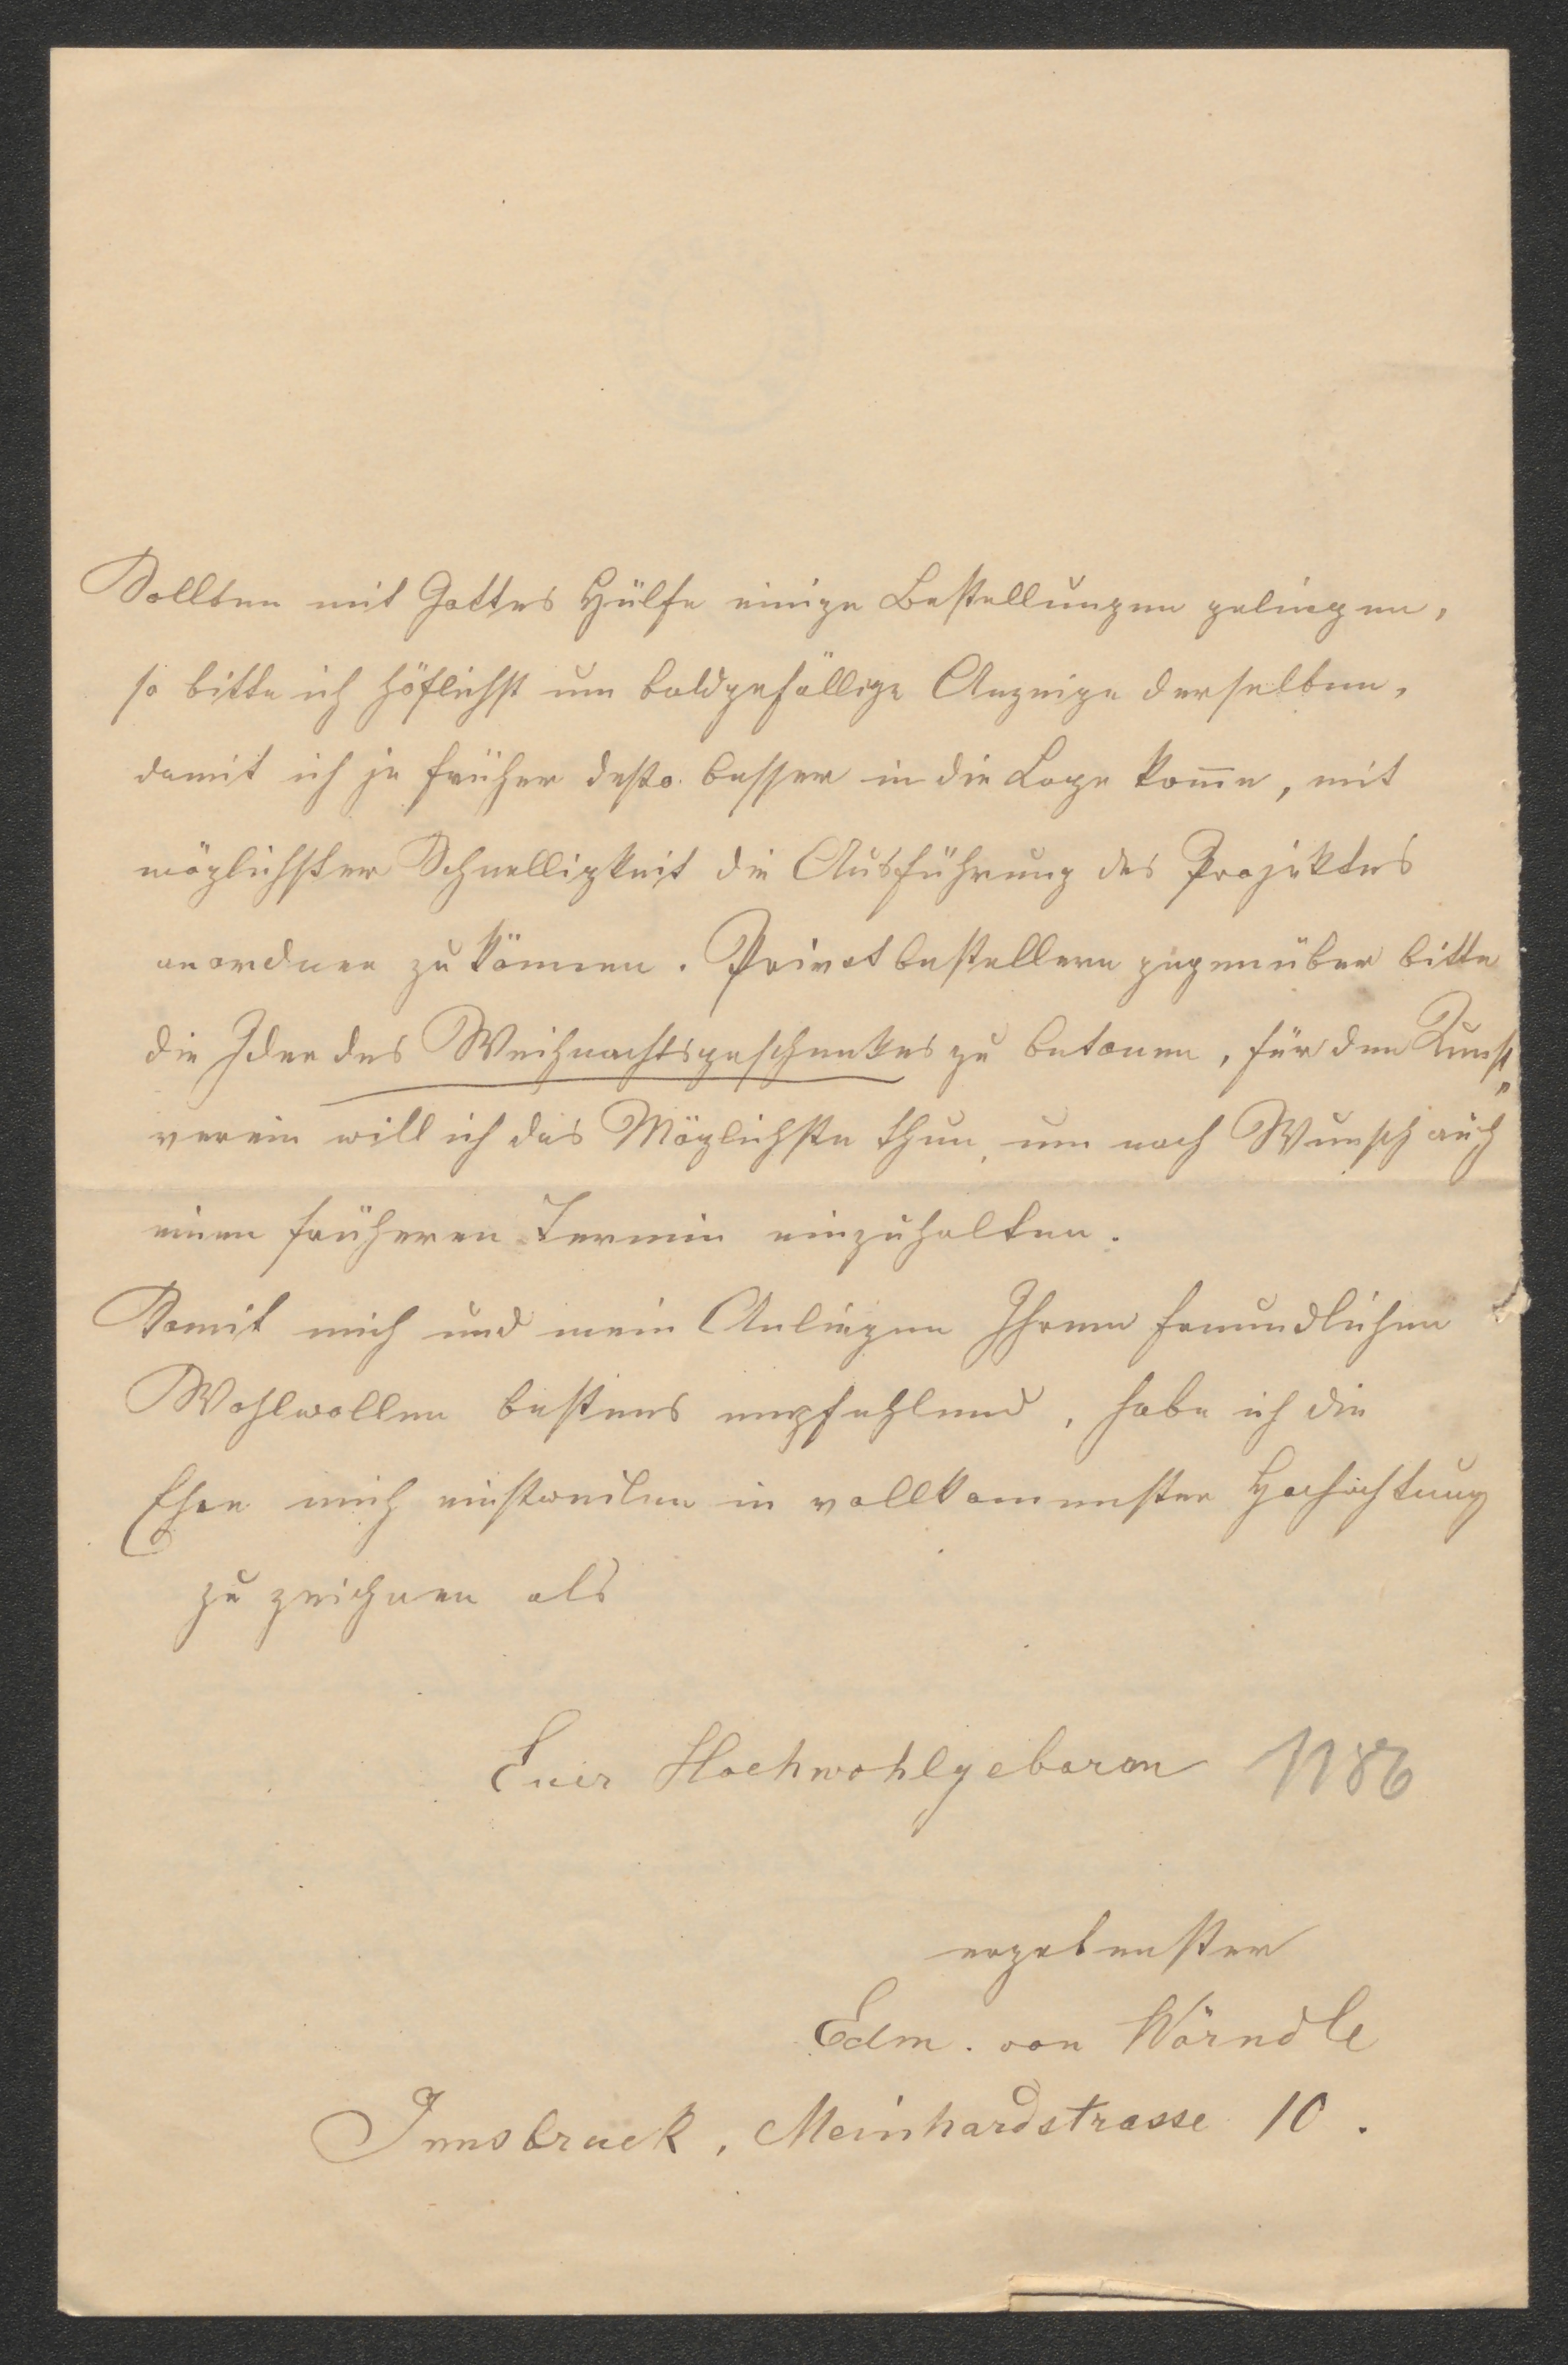 Sollten mit Gottes Hülfe einige Bestellungen gelingen,
so bitte ich höflichst um baldgefällige Anzeige derselben,
damit ich je früher desto besser in die Lage kom̅e, mit
möglichster Schnelligkeit die Ausführung des Projektes
anordnen zu können. Privatbestellern gegenüber bitte
die Idee des Weihnachtsgeschenkes zu betonen, für den Kunst„
verein will ich das Möglichste thun, um nach Wunsch auch
einen früheren Termin einzuhalten.
Somit mich und mein Anliegen Ihrem freundlichen
Wohlwollen bestens empfehlend, habe ich die
Ehre mich einstweilen in vollkommenster Hochachtung
zu zeichnen als
Euer Hochwohlgeboren 1186
ergebenster
Edm. von Wörndle
Innsbruck, Meinhardstrasse 10.